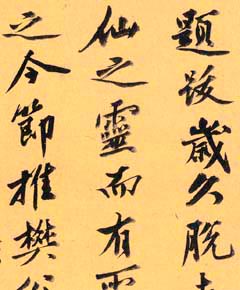 題跋歲久脫
仙之靈而有
之令節推樊